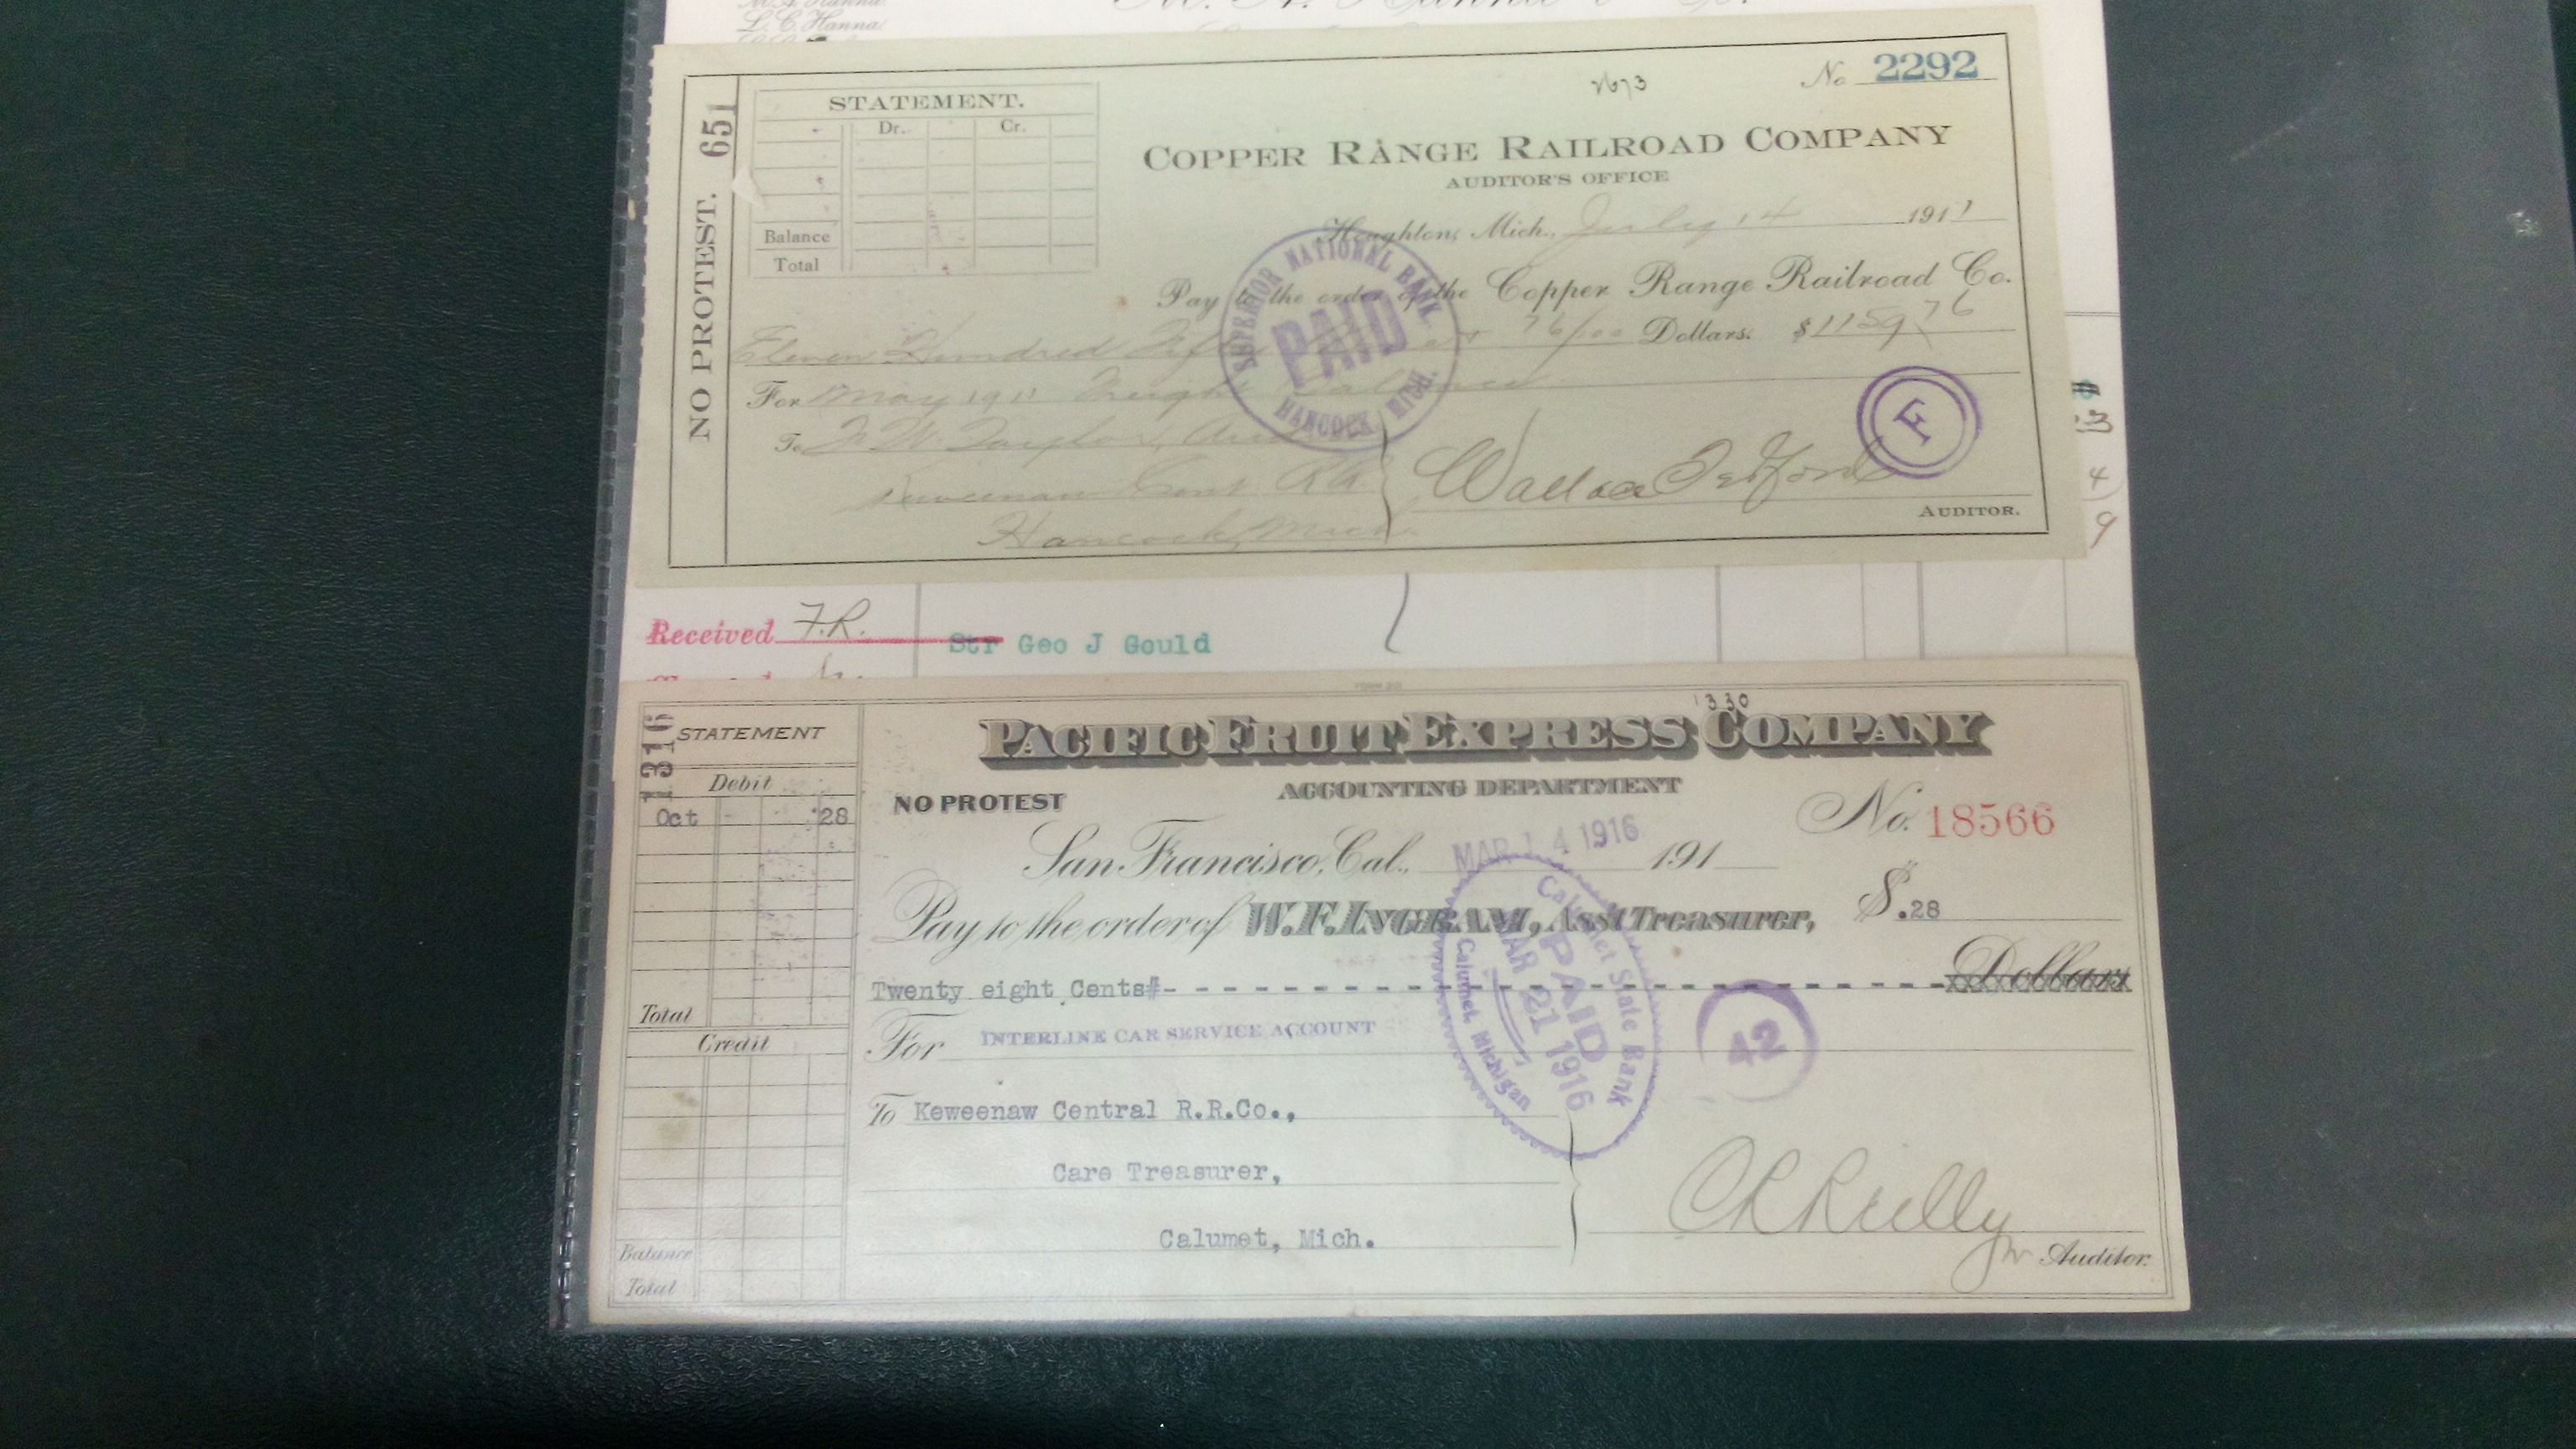 L. C. Hanna
No 2292
2673
651
NO PROTEST.
STATEMENT.
Dr. Cr.
Balance
Total
COPPER RANGE RAILROAD COMPANY
AUDITOR'S OFFICE
Houghton, Mich., July 14 1911
Pay to the order of the Copper Range Railroad Co.
Eleven Hundred & 76/100 Dollars. $1159 76
For May 1911 Freight Balance
To F. W. Taylor, Aud
Keweenaw Cent. RR
Hancock, Mich.
SUPERIOR NATIONAL BANK
PAID
HANCOCK MICH.
F
Wallace
AUDITOR.
3
4
9
Received F.R.
Str Geo J Gould
1330
1316
STATEMENT
Debit
Oct 28
Total
Credit
Balance
Total
PACIFIC FRUIT EXPRESS COMPANY
ACCOUNTING DEPARTMENT
NO PROTEST
No. 18566
San Francisco, Cal., MAR 14 1916 191
Pay to the order of W. F. INGRAM, Asst Treasurer, $.28
Twenty eight Cents#- - - - - - - - - - - - - - - - - - - - - - - - Dollars
For INTERLINE CAR SERVICE ACCOUNT
To Keweenaw Central R.R.Co.,
Care Treasurer,
Calumet, Mich.
Calumet State Bank
PAID
MAR 21 1916
Calumet, Michigan
42
C R Reilly
Auditor.